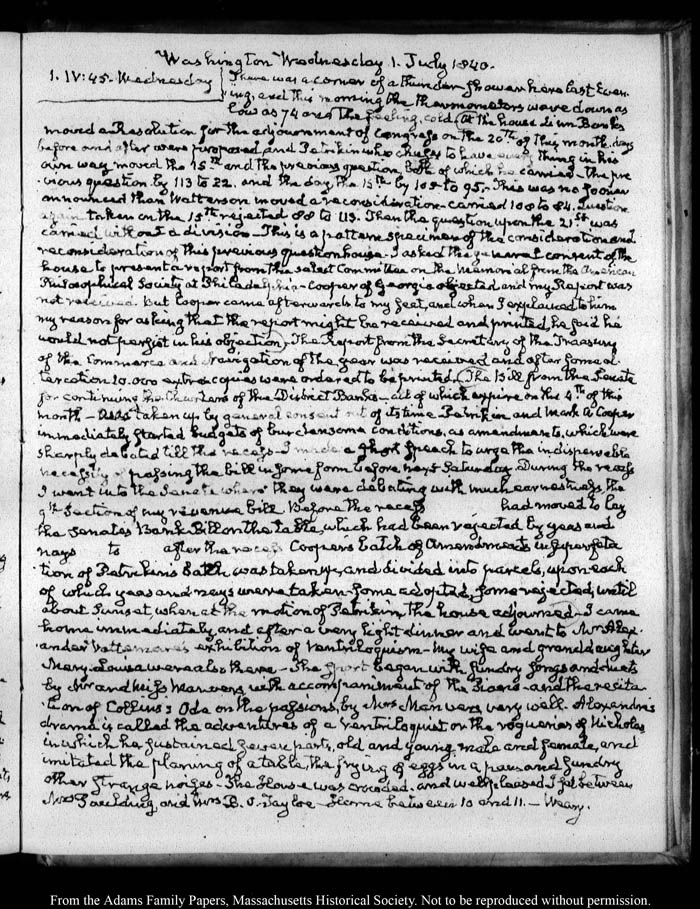 Washington Wednesday 1. July 1840.
1. IV:45. Wednesday There was a corner of a thunder shower here last Even-
ing, and this morning the thermometers were down as
low as 74 and the feeling, cold. At the house Linn Banks
moved a Resolution for the adjournment of Congress on the 20th of this month. days
before and after were proposed and Petrikin who chuses to have every thing in his
own way moved the 15th and the previous question, both of which he carried. The pre-
vious question by 113 to 22. and the day, the 15th by 105 to 95. This was no sooner
announced than Watterson moved a reconsideration carried 108 to 84. Question
again taken on the 15th rejected 88 to 113. Then the question upon the 21st was
carried without a division. This is a pattern specimen of the consideration and
reconsideration of this previous question house. I asked the general consent of the
house to present a report from the select Committee on the Memorial from the American
Philosophical Society at Philadelphia. Cooper of Georgia objected and my Report was
not received. But Cooper came afterwards to my seat, and when I explained to him
my reason for asking that the report might be received and printed, he said he
would not persist in his objection. The Report from the Secretary of the Treasury
of the Commerce and Navigation of the year was received and after some al-
tercation 10.000 extra copies were ordered to be printed. The Bill from the Senate
for continuing the Charters of the District Banks all of which expire on the 4th of this
month was taken up by general consent out of its time Petrikin and Mark A. Cooper
immediately started budgets of burdensome conditions, as amendments, which were
sharply debated till the recess. I made a short speech to urge the indispensable
necessity of passing the bill in some form before next Saturday. During the recess
I went into the Senate where they were debating with much earnestness the
9th Section of my revenue bill. Before the recess had moved to lay
the Senates Bank Bill on the table, which had been rejected by yeas and
nays to after the recess Cooper's batch of Amendments in superfeta-
tion of Petrikin's batch was taken up, and divided into parcels, upon each
of which yeas and nays were taken. Some adopted, some rejected, until
about Sunset, when at the motion of Petrikin, the house adjourned. I came
home immediately, and after a very light dinner and went to Mr Alex-
ander Vattemare's exhibition of Ventriloquism. My wife and granddaughter
Mary-Louisa were also there. The sport began with sundry songs and duets
by Mr and Miss Manvers, with accompaniment of the Piano. and the recita-
tion of Collins's Ode on the passions, by Mrs Manvers very well. Alexandre's
drama is called the adventures of a Ventriloquist or the rogueries of Nicholas
in which he sustained seven parts, old and young, male and female, and
imitated the planing of a table, the frying of eggs in a pan, and sundry
other strange noises. The House was crowded, and well pleased. I sat between
Mrs Paulding, and Mrs B. O. Tayloe. Home between 10 and 11. Weary.
From the Adams Family Papers, Massachusetts Historical Society. Not to be reproduced without permission.